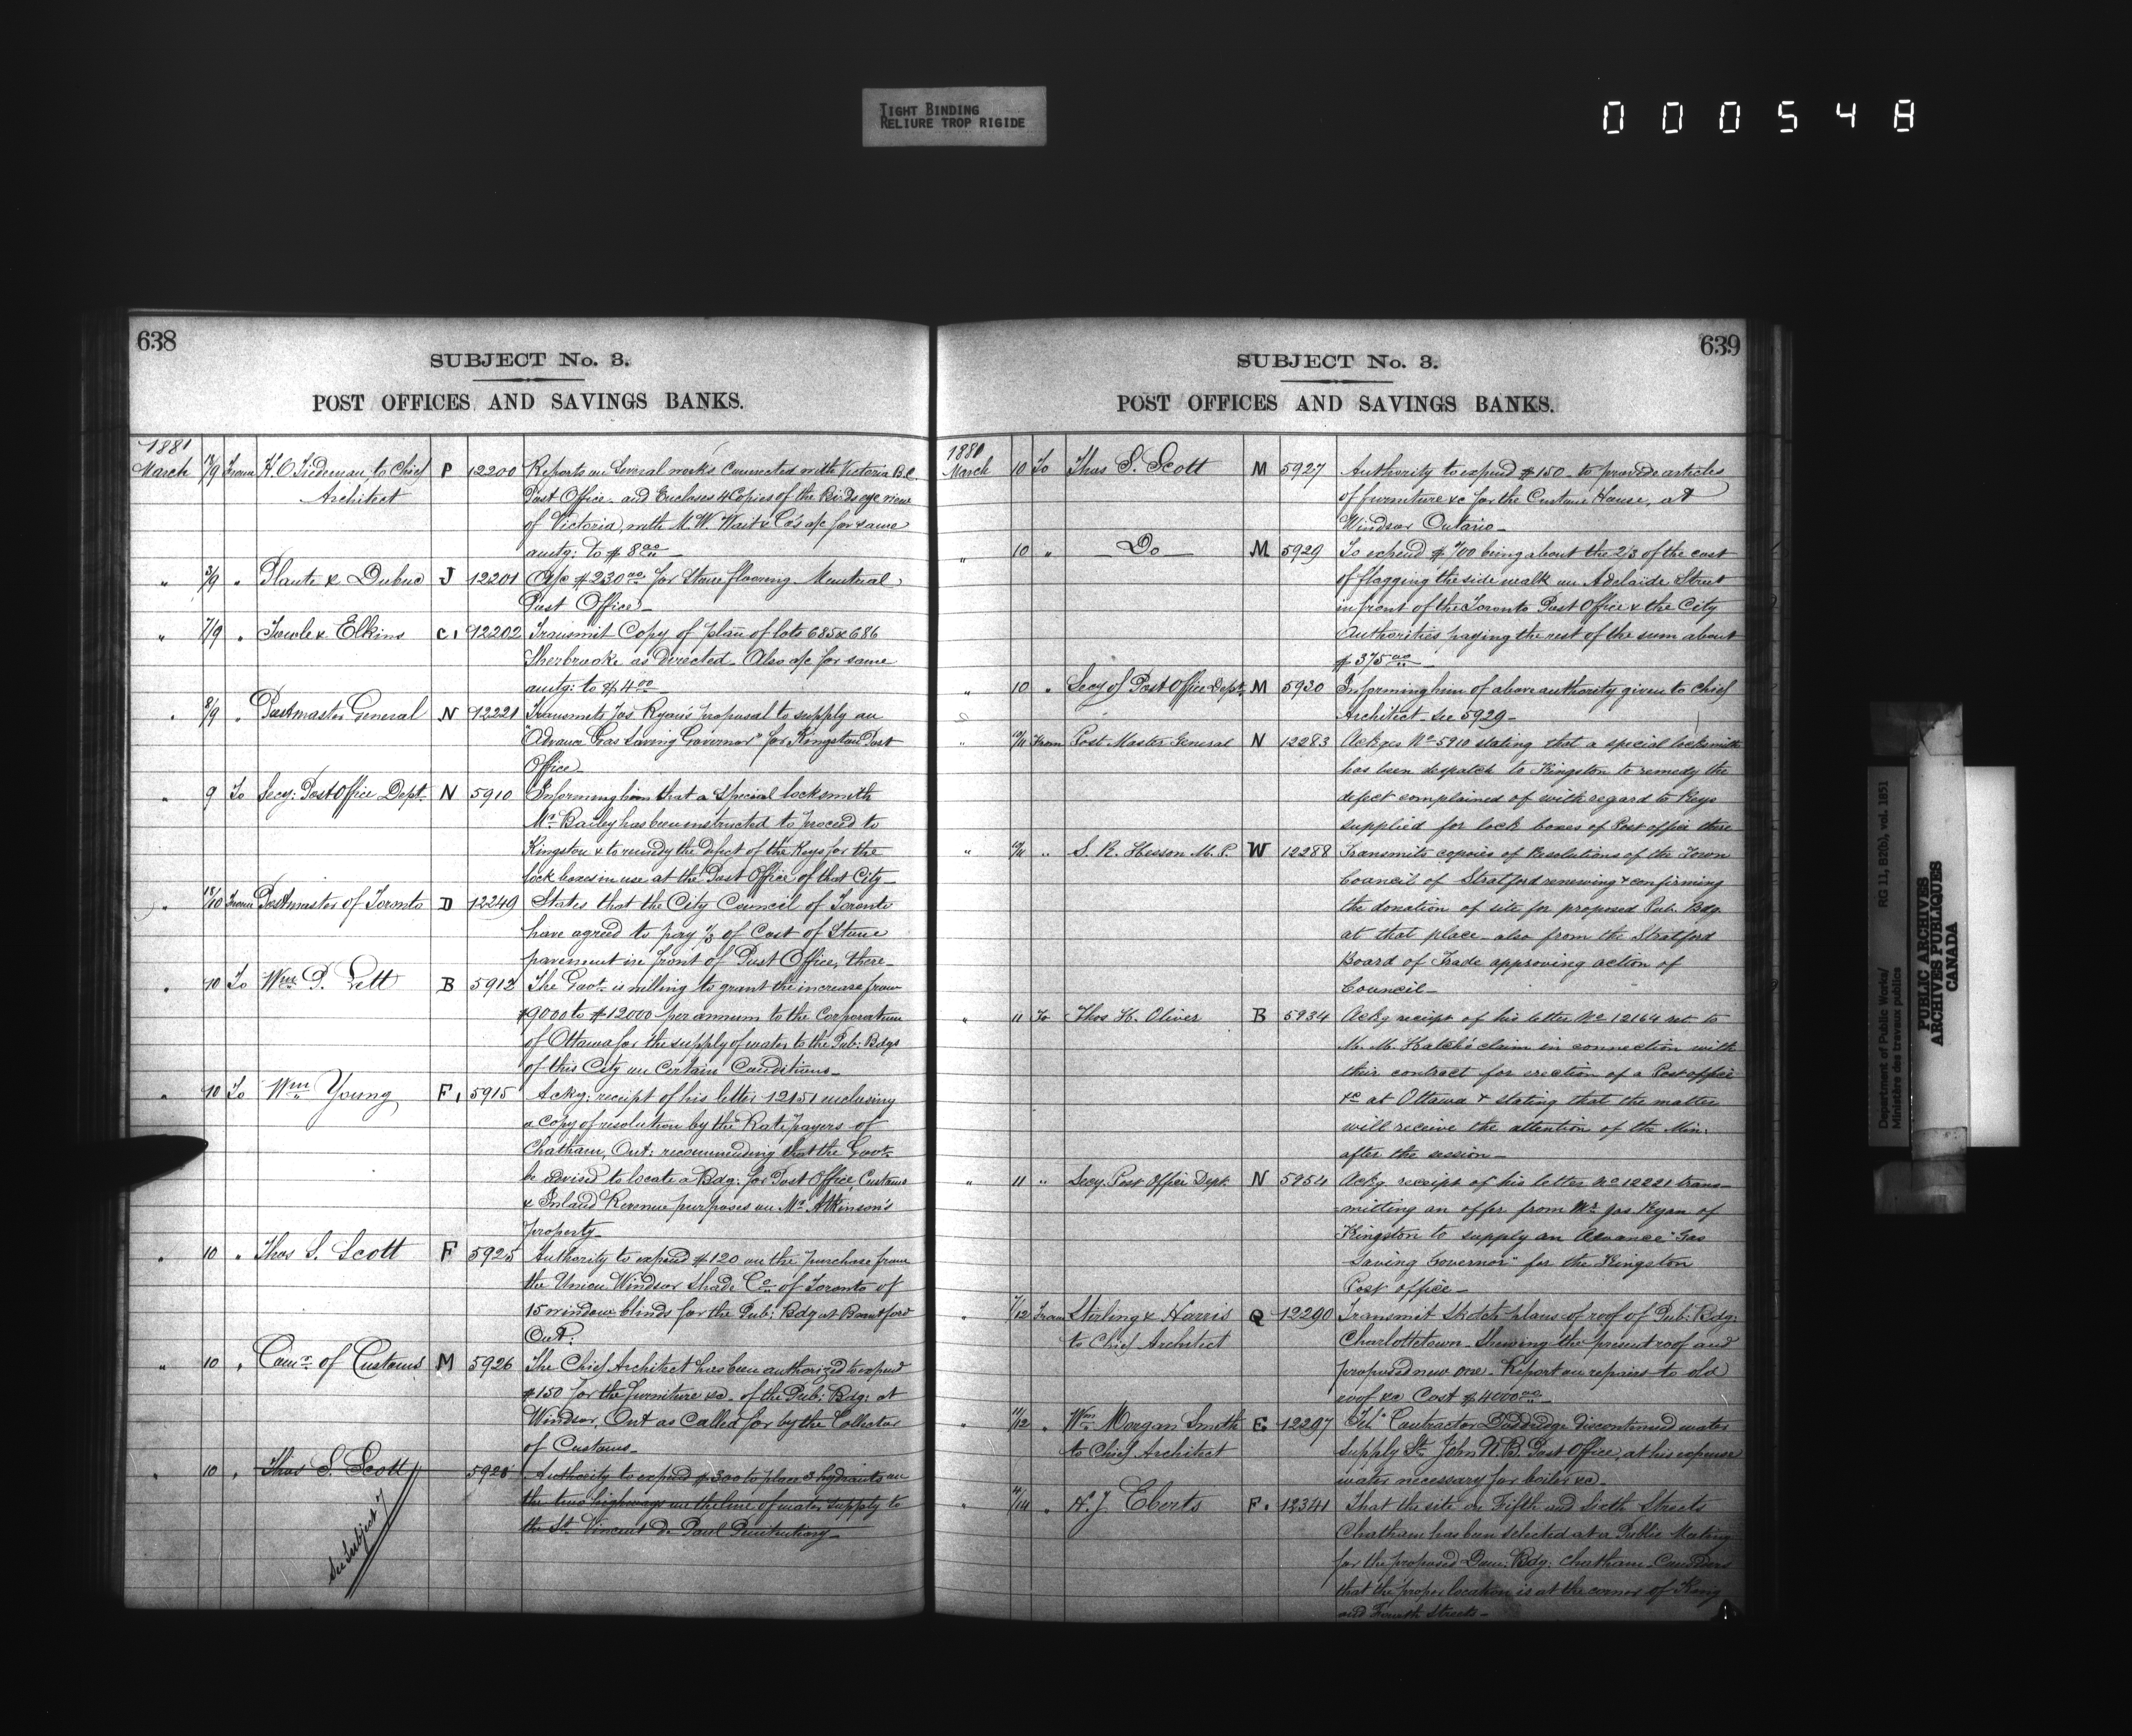 TIGHT BINDING
RELIURE TROP RIGIDE
000548
638
SUBJECT No. 3.
POST OFFICES AND SAVINGS BANKS.
1881
March 18/9 From H. O. Tiedeman, to Chief P 12200 Reports on Several works Connected with Victoria B.C.
Architect Post Office. and Encloses 4 Copies of the Birds eye view
of Victoria, with M. W. Wait & Co's a/c for same
amtg: to $8 00
" 3/9 " Plante & Dubuc J 12201 A/c $230 00 for Stone flooring Montreal
Post Office
" 7/9 " Towle & Elkins C. 12202 Transmit Copy of plan of lots 685 & 686
Sherbrooke as Directed. Also a/c for same
amtg: to $4 00
" 8/9 " Postmaster General N 12221 Transmits Jas Ryan's proposal to supply an
"Advance Gas Saving Governor" for Kingston Post
Office
" 9 To Secy: Post Office Dept. N 5910 Informing him that a Special locksmith
Mr Bailey has been instructed to proceed to
Kingston & to remedy the defect of the Keys for the
lock boxes in use at the Post Office of that City
" 18/10 From Postmaster of Toronto D 12249 States that the City Council of Toronto
have agreed to pay 1/3 of Cost of Stone
pavement in front of Post Office, there
" 10 To Wm P. Lett B 5912 The Govt. is willing to grant the increase from
$9000 to $12000 per annum to the Corporation
of Ottawa for the supply of water to the Pub: Bdgs
of this City on Certain Conditions
" 10 To Wm Young F. 5915 Ackg: receipt of his letter 12151 enclosing
a Copy of resolution by the Rate payers of
Chatham, Ont: recommending that the Govt.
be advised to locate a Bdg. for Post Office, Customs
& Inland Revenue purposes on Mr Atkinson's
property
" 10 " Thos S. Scott F 5925 Authority to expend $120 on the purchase from
the Union Windsor Shade Co. of Toronto of
15 window blinds for the Pub: Bdg at Brantford
Ont:
" 10 " Comr of Customs M 5926 The Chief Architect has been authorized to expend
$150 for the furniture &c. of the Pub: Bdg: at
Windsor, Ont as Called for by the Collector
of Customs
" 10 " Thos S. Scott 5928 Authority to expend $300 to place 3 hydrants on
the two highways on the line of water supply to
the St. Vincent de Paul Penitentiary
See Subject 7
639
SUBJECT No. 3.
POST OFFICES AND SAVINGS BANKS.
1881
March 10 To Thos S. Scott M 5927 Authority to expend $150 to provide articles
of furniture &c for the Custom House, at
Windsor Ontario
" 10 " Do M 5929 To expend $700 being about the 2/3 of the cost
of flagging the side walk on Adelaide Street
in front of the Toronto Post Office & the City
Authorities paying the rest of the sum about
$375 00
" 10 " Secy of Post Office Dept. M 5930 Informing him of above authority given to Chief
Architect See 5929
" 10/11 From Post Master General N 12283 Ackges No 5910 stating that a special locksmith
has been despatch to Kingston to remedy the
defect complained of with regard to Keys
supplied for lock boxes of Post office there
" 10/11 " S. R. Hesson M.P. W 12288 Transmits copies of Resolutions of the Town
Council of Stratford renewing & confirming
the donation of site for proposed Pub. Bdg.
at that place also from the Stratford
Board of Trade approving action of
Council
" 11 To Thos H. Oliver B 5934 Ackg receipt of his letter No 12164 ret to
M. M. Hatch's claim in connection with
their contract for erection of a Post office
&c at Ottawa & stating that the matter
will receive the attention of the Min.
after the session
" 11 " Secy. Post Office Dept. N 5954 Ackg receipt of his letter No 12221 trans-
mitting an offer from Mr Jas Ryan of
Kingston to supply an Advance "Gas
Saving Governor" for the Kingston
Post office
" 7/12 From Stirling & Harris Q 12290 Transmit Sketch plans of roof of Pub: Bdg:
to Chief Architect Charlottetown. Shewing the present roof and
proposed new one. Report on repairs to old
roof &c Cost $4000 00
" 11/12 " Wm Morgan Smith E. 12297 Tel: Contractor Dodridge discontinued water
to Chief Architect supply St. John N.B. Post Office, at his expense
water necessary for boiler &c.
" 11/14 " H. J. Eberts F. 12341 That the site on Fifth and Sixth Streets
Chatham has been selected at a Public Meeting
for the proposed Dom: Bdg: Chatham. Considers
that the proper location is at the corner of King
and Fourth Streets
Department of Public Works/
Ministère des travaux publics
RG 11, B2(b), vol. 1851
PUBLIC ARCHIVES
ARCHIVES PUBLIQUES
CANADA